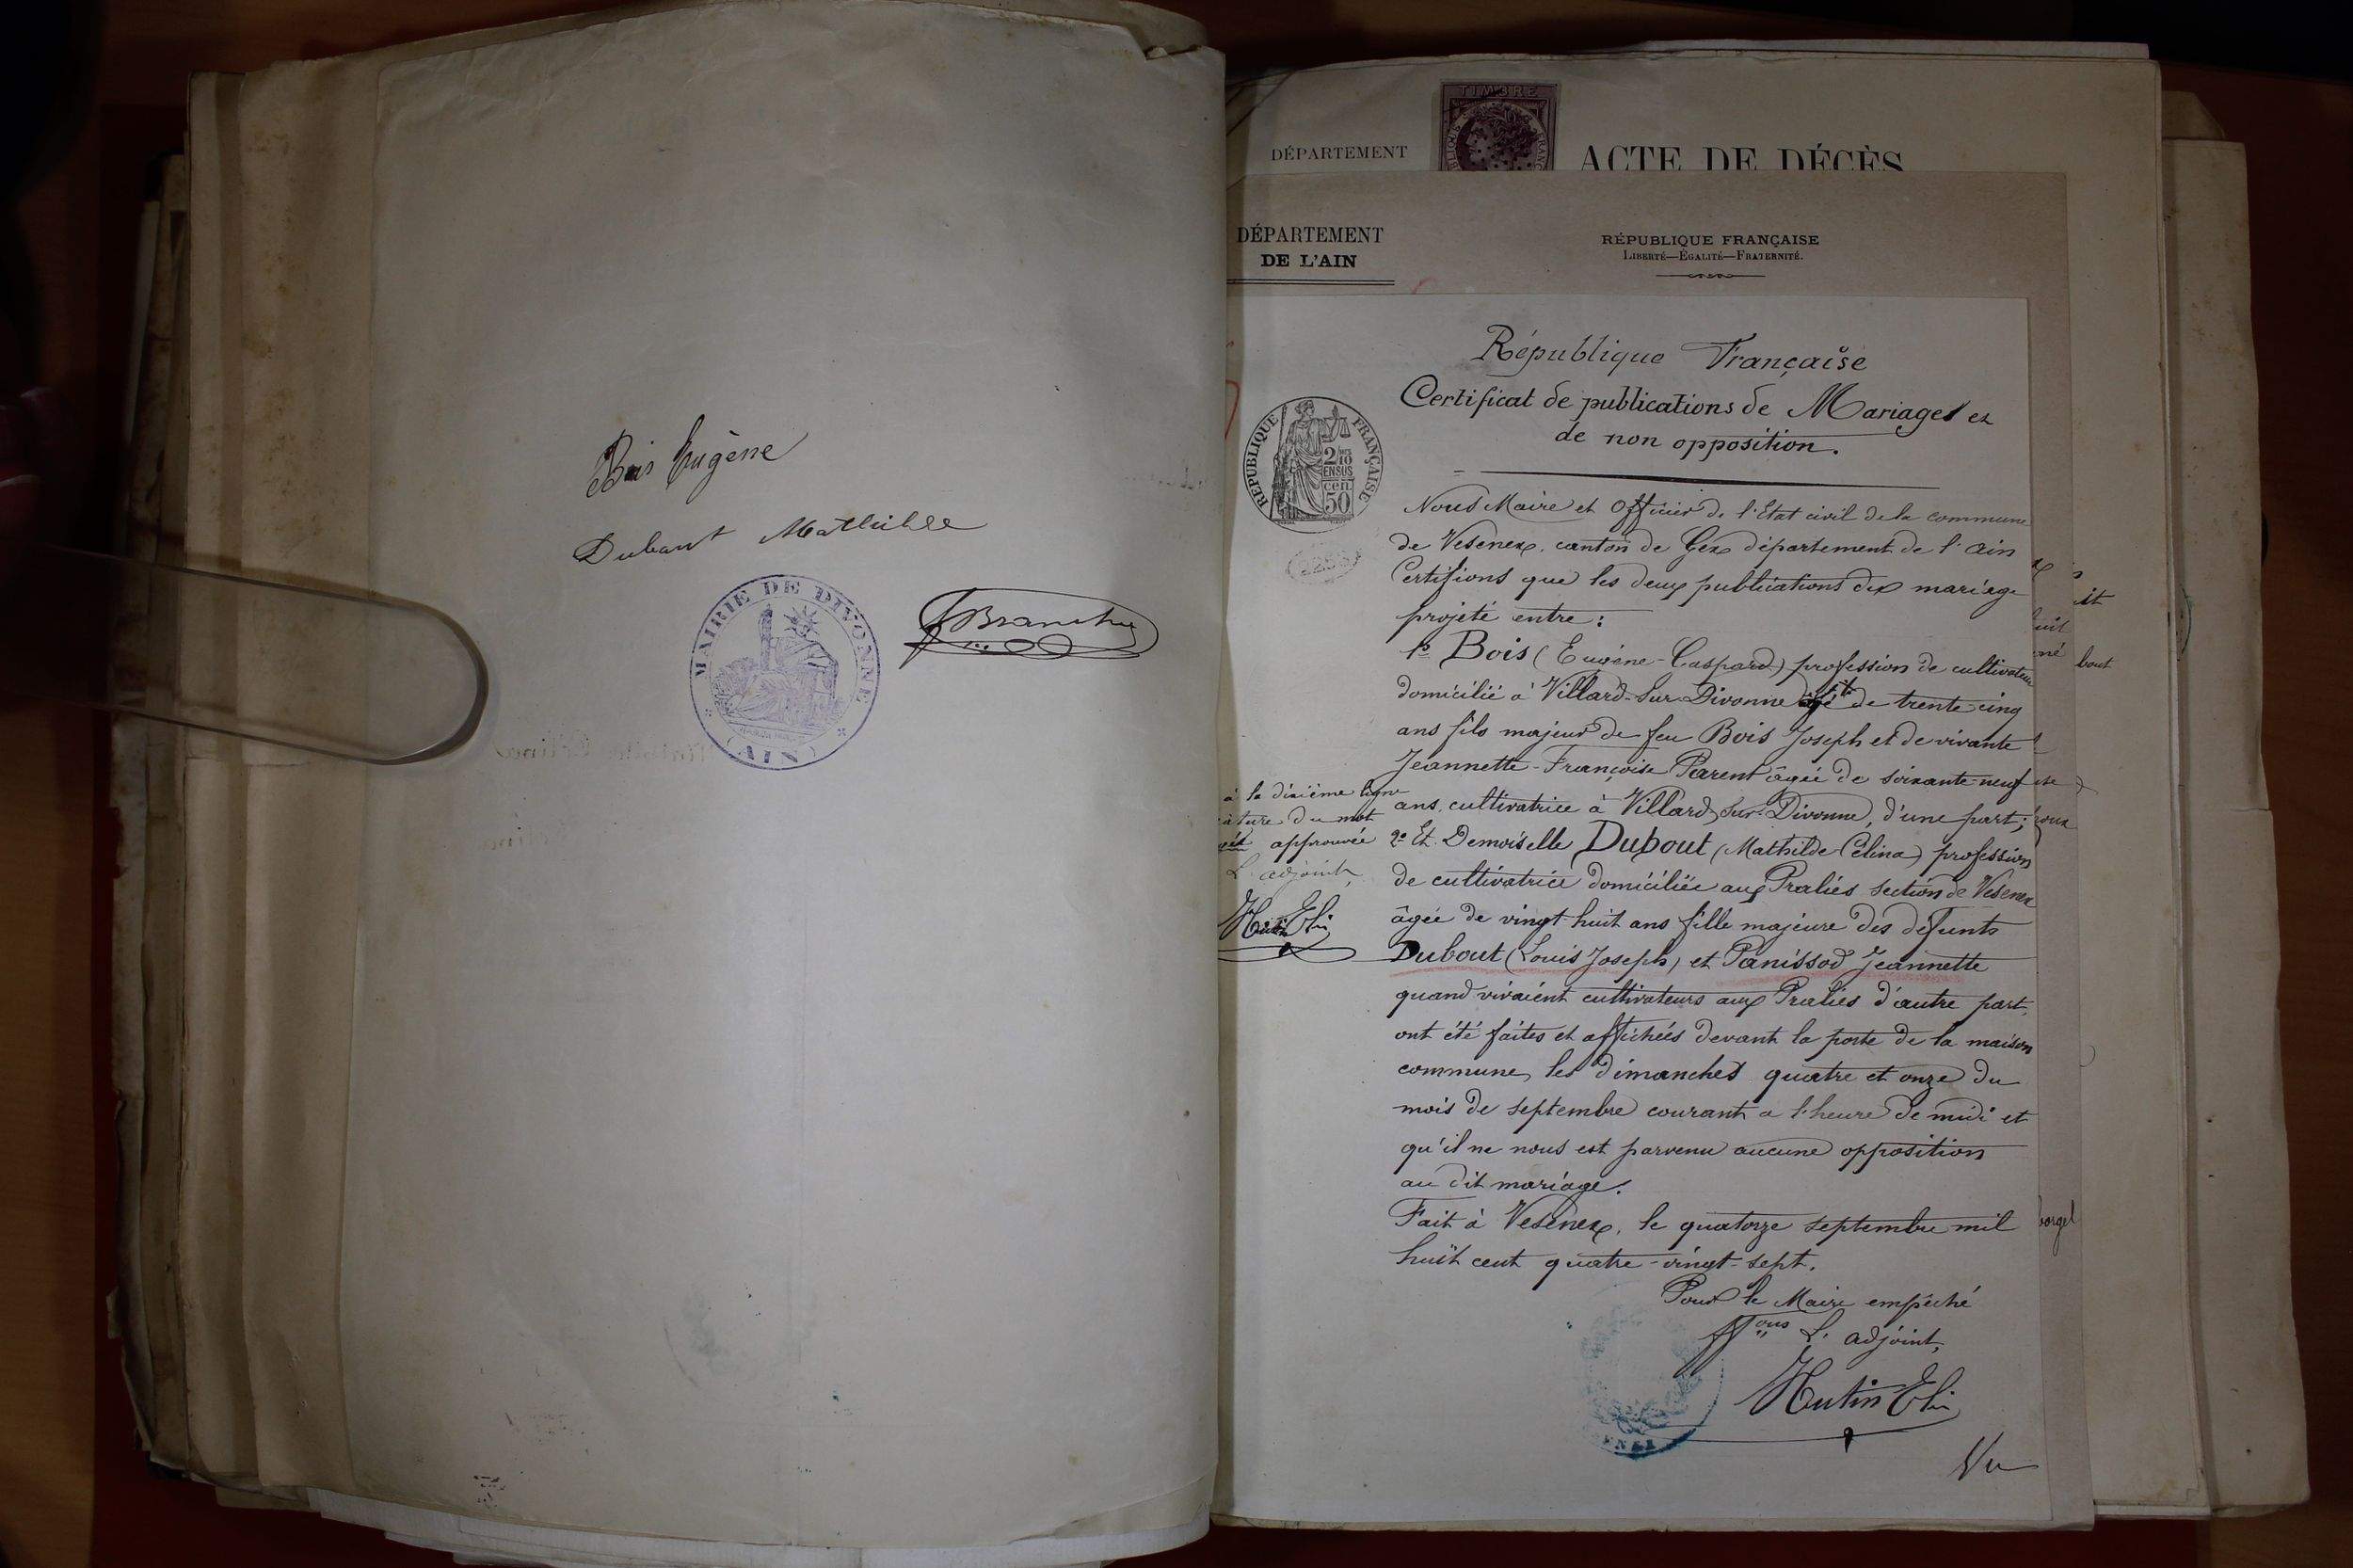 Bois Eugène
Dubout Mathilde
MAIRIE DE DIVONNE
(AIN)
TIMBRE
DÉPARTEMENT
ACTE DE DÉCÈS
DÉPARTEMENT
DE L'AIN
RÉPUBLIQUE FRANÇAISE
LIBERTÉ—ÉGALITÉ—FRATERNITÉ.
République Française
Certificat de publications de Mariages et
de non opposition.
RÉPUBLIQUE FRANÇAISE
2/10
EN SUS
50 cen
Nous Maire et Officier de l'Etat civil de la commune
de Vesenex, canton de Gex département de l'Ain
Certifions que les deux publications du mariage
projeté entre :
1º Bois (Eugène-Gaspard) profession de cultivateur
domicilié à Villard-sur-Divonne de trente cinq
ans fils majeur de feu Bois Joseph et de vivante
Jeannette-Françoise Parent âgée de soixante-neuf
ans, cultivatrice à Villard-sur-Divonne, d'une part;
2º Et Demoiselle Dubout (Mathilde-Célina) profession
de cultivatrice domiciliée aux Praliés section de Vesenex
âgée de vingt-huit ans fille majeure des défunts
Dubout (Louis Joseph) et Panissod Jeannette
quand vivaient cultivateurs aux Praliés d'autre part,
ont été faites et affichées devant la porte de la maison
commune, les dimanches quatre et onze du
mois de septembre courant a l'heure de midi et
qu'il ne nous est parvenu aucune opposition
au dit mariage.
Fait à Vesenex, le quatorze septembre mil
huit cent quatre-vingt-sept.
Pour le Maire empêché
Nous L'adjoint,
Hutin Eli
Vu
à la dixième ligne
du mot
approuvée
L'adjoint,
Hutin Eli
bout